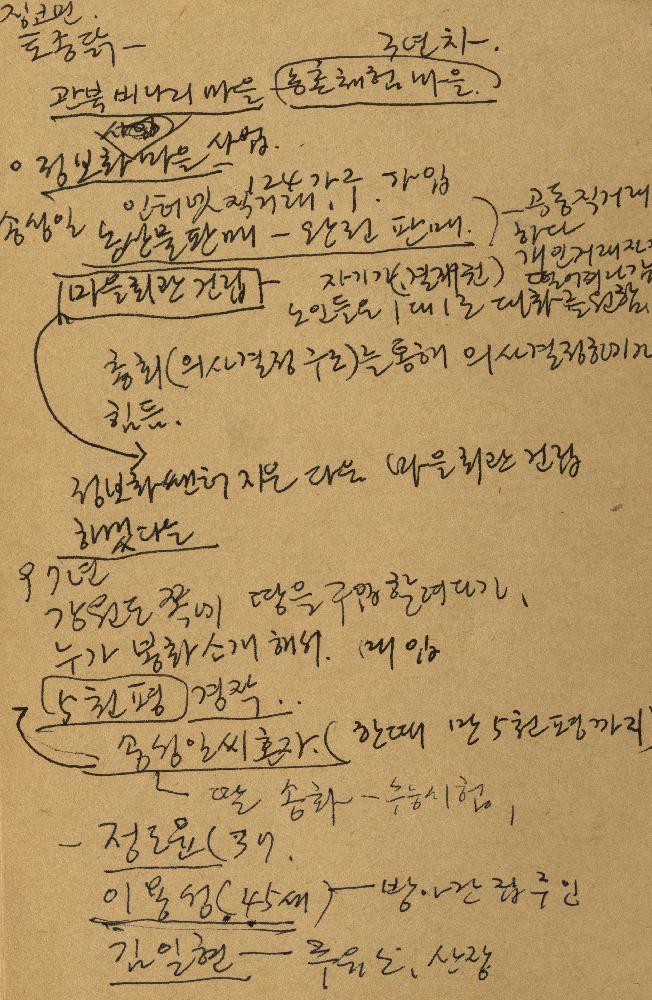 토종닭 —
3년차.
관북 비나리 마을 (농촌체험 마을.)
정보화마을 사업.
124가구. 가입
인터넷 직거래,
송성일 농산물판매 - 완전 판매.
공동직거래
하다
개인거래
마을회관 건립
자기가
노인들은 1대1로 대화를 원함.
총회(의사결정 구조)를 통해 의사결정하기가
힘듬.
정보화센터 지은 다음 마을회관 건립
97년
강원도 쪽에 땅을 구입할려다가,
누가 봉화 소개해서. 매입
5천평 경작..
송성일씨 혼자. (한때 만5천평까지)
딸 송화 - 수능시험,
- 정도윤(37.
이용성(45세) — 방아간집주인
김일현 —